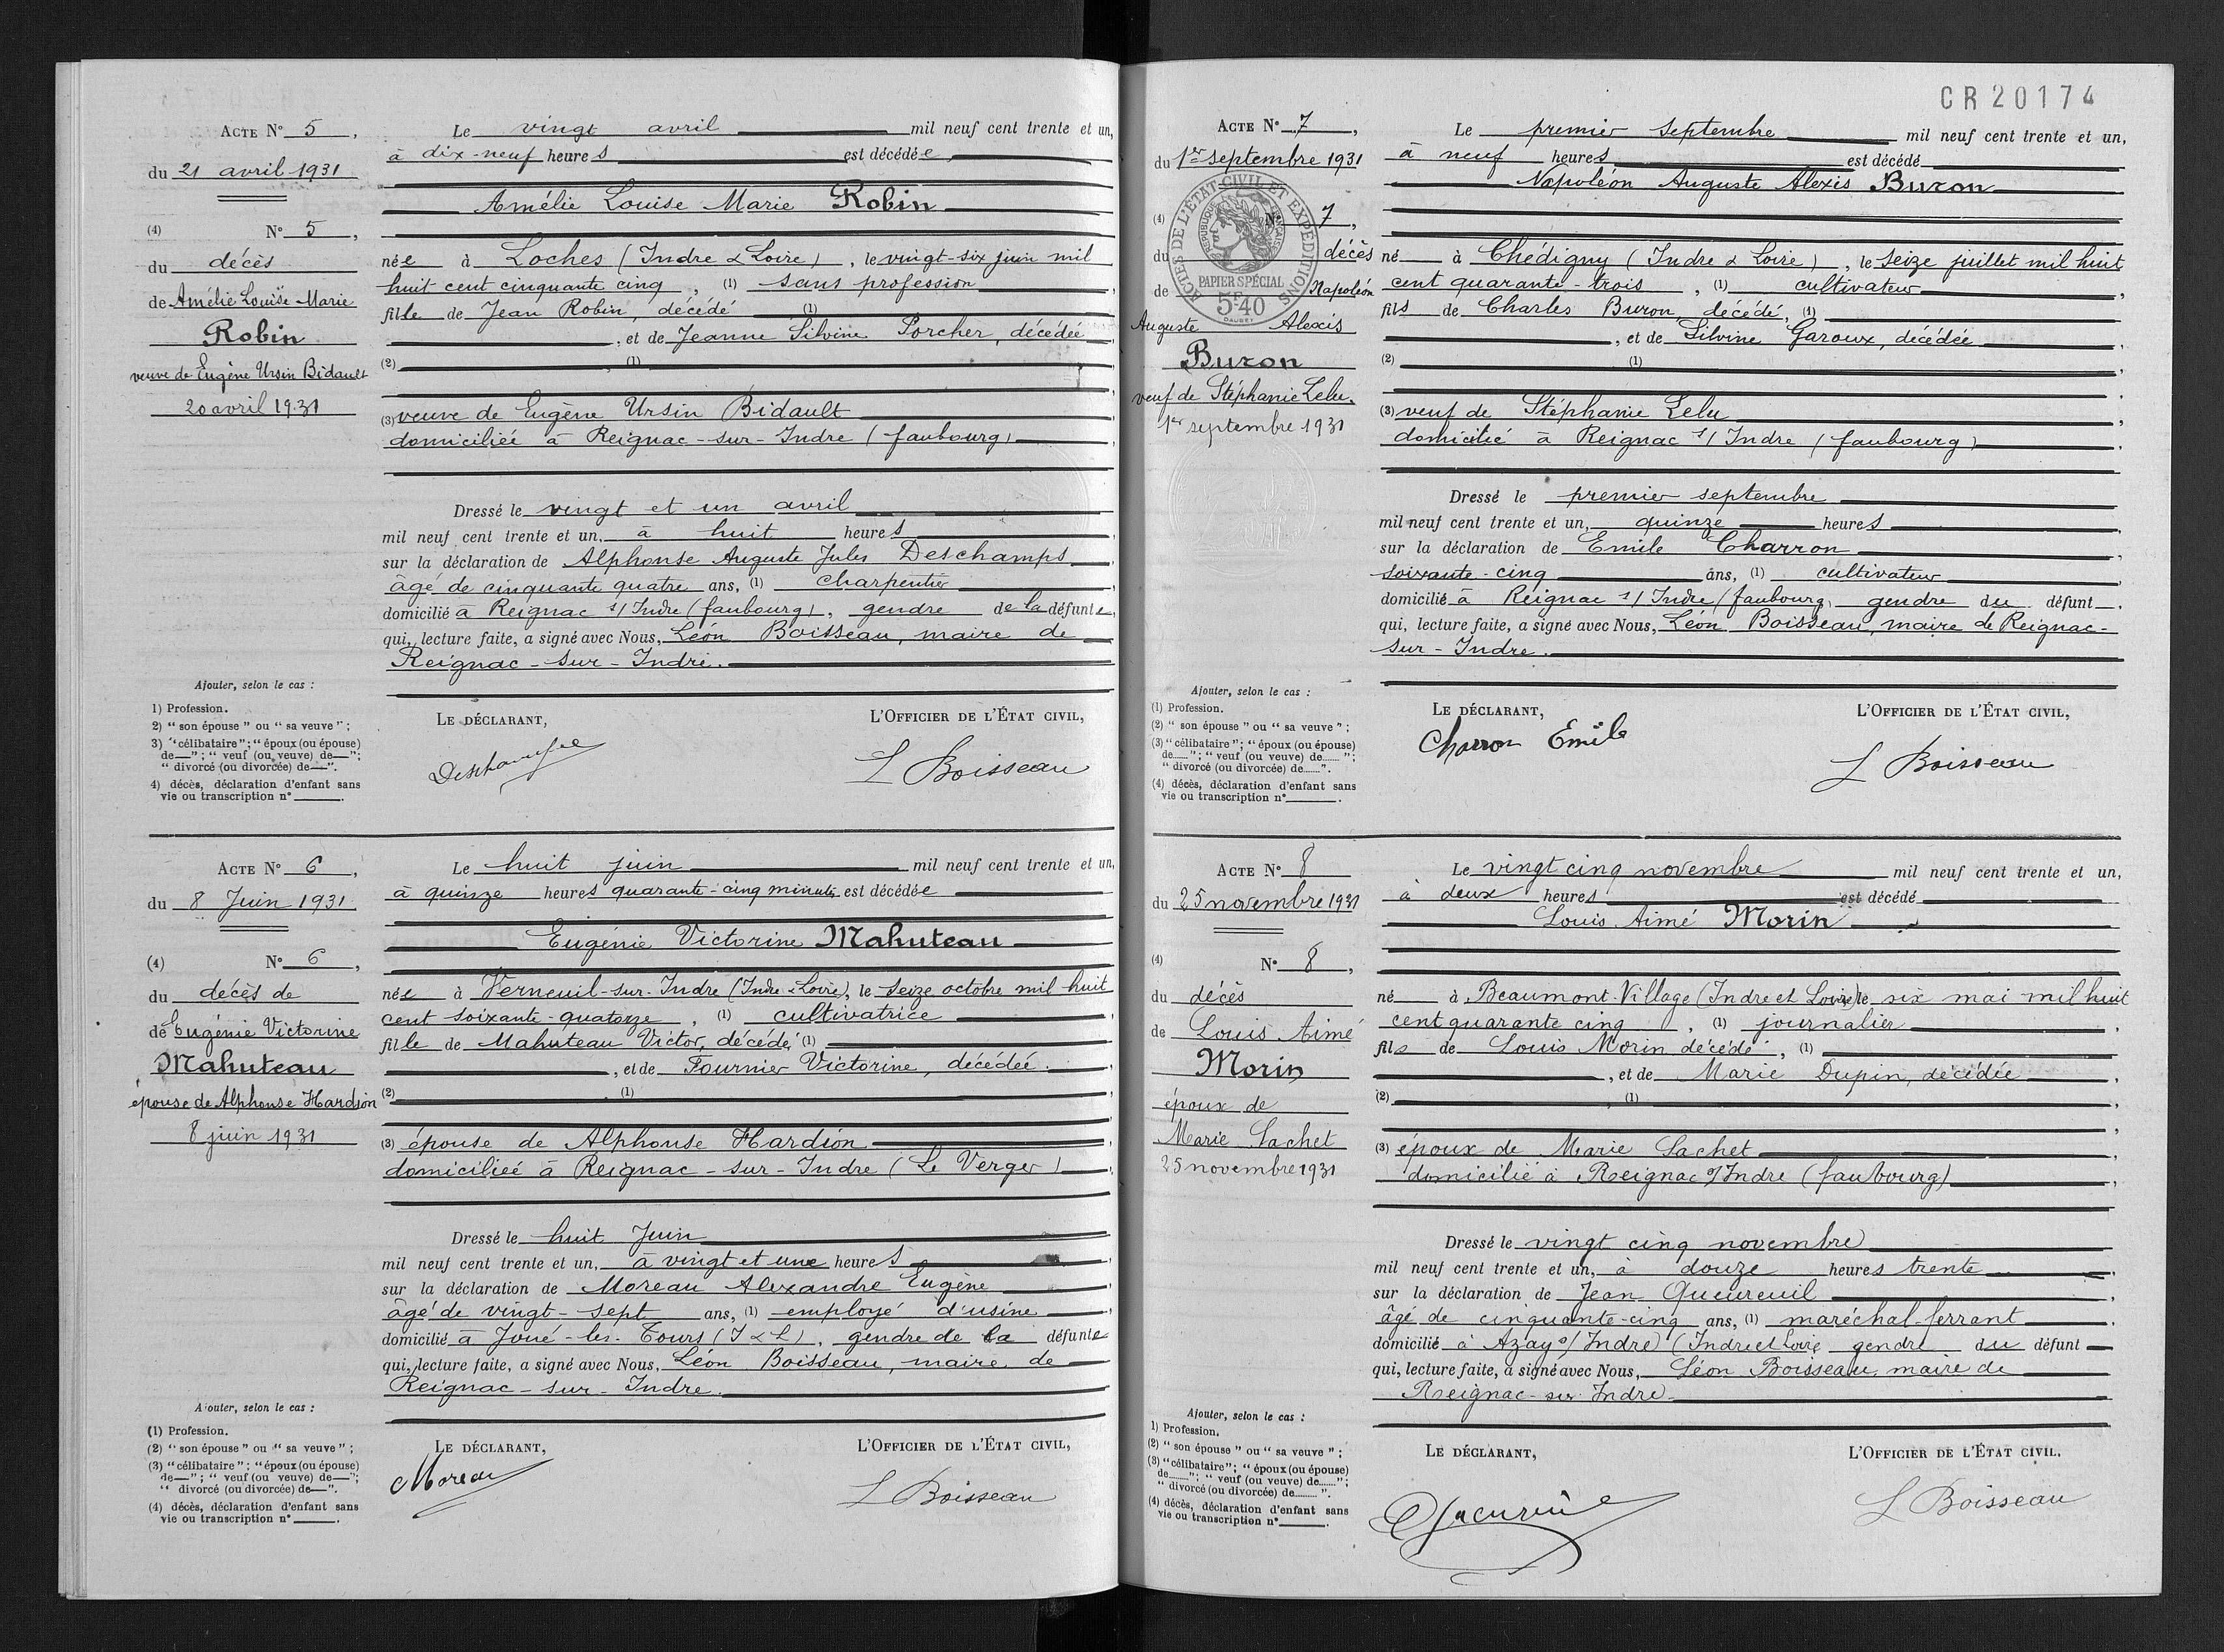 ACTE N° 5,
du 21 avril 1931
(4) N° 5,
du décès
de Amélie Louise Marie
Robin
veuve de Eugène Ursin Bidault
20 avril 1931
Le vingt avril mil neuf cent trente et un,
à dix-neuf heures est décédée
Amélie Louise Marie Robin
née à Loches (Indre & Loire), le vingt-six juin mil
huit cent cinquante cinq, (1) sans profession
fille de Jean Robin, décédé (1)
, et de Jeanne Silvine Porcher, décédée
(2) , (1)
(3) veuve de Eugène Ursin Bidault
domiciliée à Reignac-sur-Indre (faubourg)
Dressé le vingt et un avril
mil neuf cent trente et un, à huit heures
sur la déclaration de Alphonse Auguste Jules Deschamps
âgé de cinquante quatre ans, (1) Charpentier
domicilié à Reignac s/ Indre (faubourg), gendre de la défunte,
qui, lecture faite, a signé avec Nous, Léon Boisseau, maire de
Reignac-sur-Indre.
Ajouter, selon le cas :
1) Profession.
2) “ son épouse ” ou “ sa veuve ” ;
3) “ célibataire ” ; “ époux (ou épouse)
de— ” ; “ veuf (ou veuve) de— ” ;
“ divorcé (ou divorcée) de— ”.
4) décès, déclaration d'enfant sans
vie ou transcription n° .
LE DÉCLARANT,
L'OFFICIER DE L'ÉTAT CIVIL,
Deschamps
L Boisseau
ACTE N° 6,
du 8 Juin 1931
(4) N° 6,
du décès de
de Eugénie Victorine
Mahuteau
épouse de Alphonse Hardion
8 juin 1931
Le huit juin mil neuf cent trente et un,
à quinze heures quarante-cinq minutes est décédée
Eugénie Victorine Mahuteau
née à Verneuil-sur-Indre (Indre & Loire), le seize octobre mil huit
cent soixante-quatorze, (1) cultivatrice
fille de Mahuteau Victor, décédé (1)
, et de Fournier Victorine, décédée.
(2) , (1)
(3) épouse de Alphonse Hardion
domiciliée à Reignac-sur-Indre (Le Verger)
Dressé le huit Juin
mil neuf cent trente et un, à vingt et une heures
sur la déclaration de Moreau Alexandre Eugène
âgé de vingt-sept ans, (1) employé d'usine
domicilié à Joué-les-Tours (I & L), gendre de la défunte
qui, lecture faite, a signé avec Nous, Léon Boisseau, maire de
Reignac-sur-Indre.
Ajouter, selon le cas :
(1) Profession.
(2) “ son épouse ” ou “ sa veuve ” ;
(3) “ célibataire ” ; “ époux (ou épouse)
de— ” ; “ veuf (ou veuve) de— ” ;
“ divorcé (ou divorcée) de— ”.
(4) décès, déclaration d'enfant sans
vie ou transcription n° .
LE DÉCLARANT,
L'OFFICIER DE L'ÉTAT CIVIL,
Moreau
L Boisseau
CR20174
ACTE N° 7,
du 1er septembre 1931
ACTES DE L'ÉTAT CIVIL ET EXPÉDITIONS
RÉPUBLIQUE FRANÇAISE
PAPIER SPÉCIAL
5F40
DAUSSY
(4) N° 7,
du décès
de Napoléon
Auguste Alexis
Buron
veuf de Stéphanie Lelu.
1er septembre 1931
Le premier septembre mil neuf cent trente et un,
à neuf heures est décédé
Napoléon Auguste Alexis Buron
né à Chédigny (Indre & Loire), le seize juillet mil huit
cent quarante-trois, (1) cultivateur
fils de Charles Buron, décédé, (1)
, et de Silvine Garoux, décédée
(2) (1)
(3) veuf de Stéphanie Lelu
domicilié à Reignac s/ Indre (faubourg)
Dressé le premier septembre
mil neuf cent trente et un, quinze heures
sur la déclaration de Emile Charron
soixante-cinq ans, (1) cultivateur
domicilié à Reignac s/ Indre (faubourg, gendre du défunt,
qui, lecture faite, a signé avec Nous, Léon Boisseau, maire de Reignac-
sur-Indre.
Ajouter, selon le cas :
(1) Profession.
(2) “ son épouse ” ou “ sa veuve ” ;
(3) “ célibataire ” ; “ époux (ou épouse)
de...... ” ; “ veuf (ou veuve) de...... ” ;
“ divorcé (ou divorcée) de...... ”.
(4) décès, déclaration d'enfant sans
vie ou transcription n° .
LE DÉCLARANT,
L'OFFICIER DE L'ÉTAT CIVIL,
Charron Emile
L Boisseau
ACTE N° 8
du 25 novembre 1931
(4) N° 8,
du décès
de Louis Aimé
Morin
époux de
Marie Sachet
25 novembre 1931
Le vingt cinq novembre mil neuf cent trente et un,
à deux heures est décédé
Louis Aimé Morin
né à Beaumont-Village (Indre et Loire) le six mai mil huit
cent quarante cinq, (1) journalier
fils de Louis Morin décédé, (1)
, et de Marie Dupin, décédée
(2) , (1)
(3) époux de Marie Sachet
domicilié à Reignac s/Indre (faubourg)
Dressé le vingt cinq novembre
mil neuf cent trente et un, à douze heures trente
sur la déclaration de Jean Queureuil
âgé de cinquante-cinq ans, (1) maréchal-ferrant
domicilié à Azay s/ Indre (Indre et Loire gendre du défunt
qui, lecture faite, a signé avec Nous, Léon Boisseau, maire de
Reignac-sur-Indre.
Ajouter, selon le cas :
1) Profession.
(2) “ son épouse ” ou “ sa veuve ” ;
(3) “ célibataire ” ; “ époux (ou épouse)
de...... ” ; “ veuf (ou veuve) de...... ” ;
“ divorcé (ou divorcée) de...... ”.
(4) décès, déclaration d'enfant sans
vie ou transcription n° .
LE DÉCLARANT,
L'OFFICIER DE L'ÉTAT CIVIL.
L Boisseau